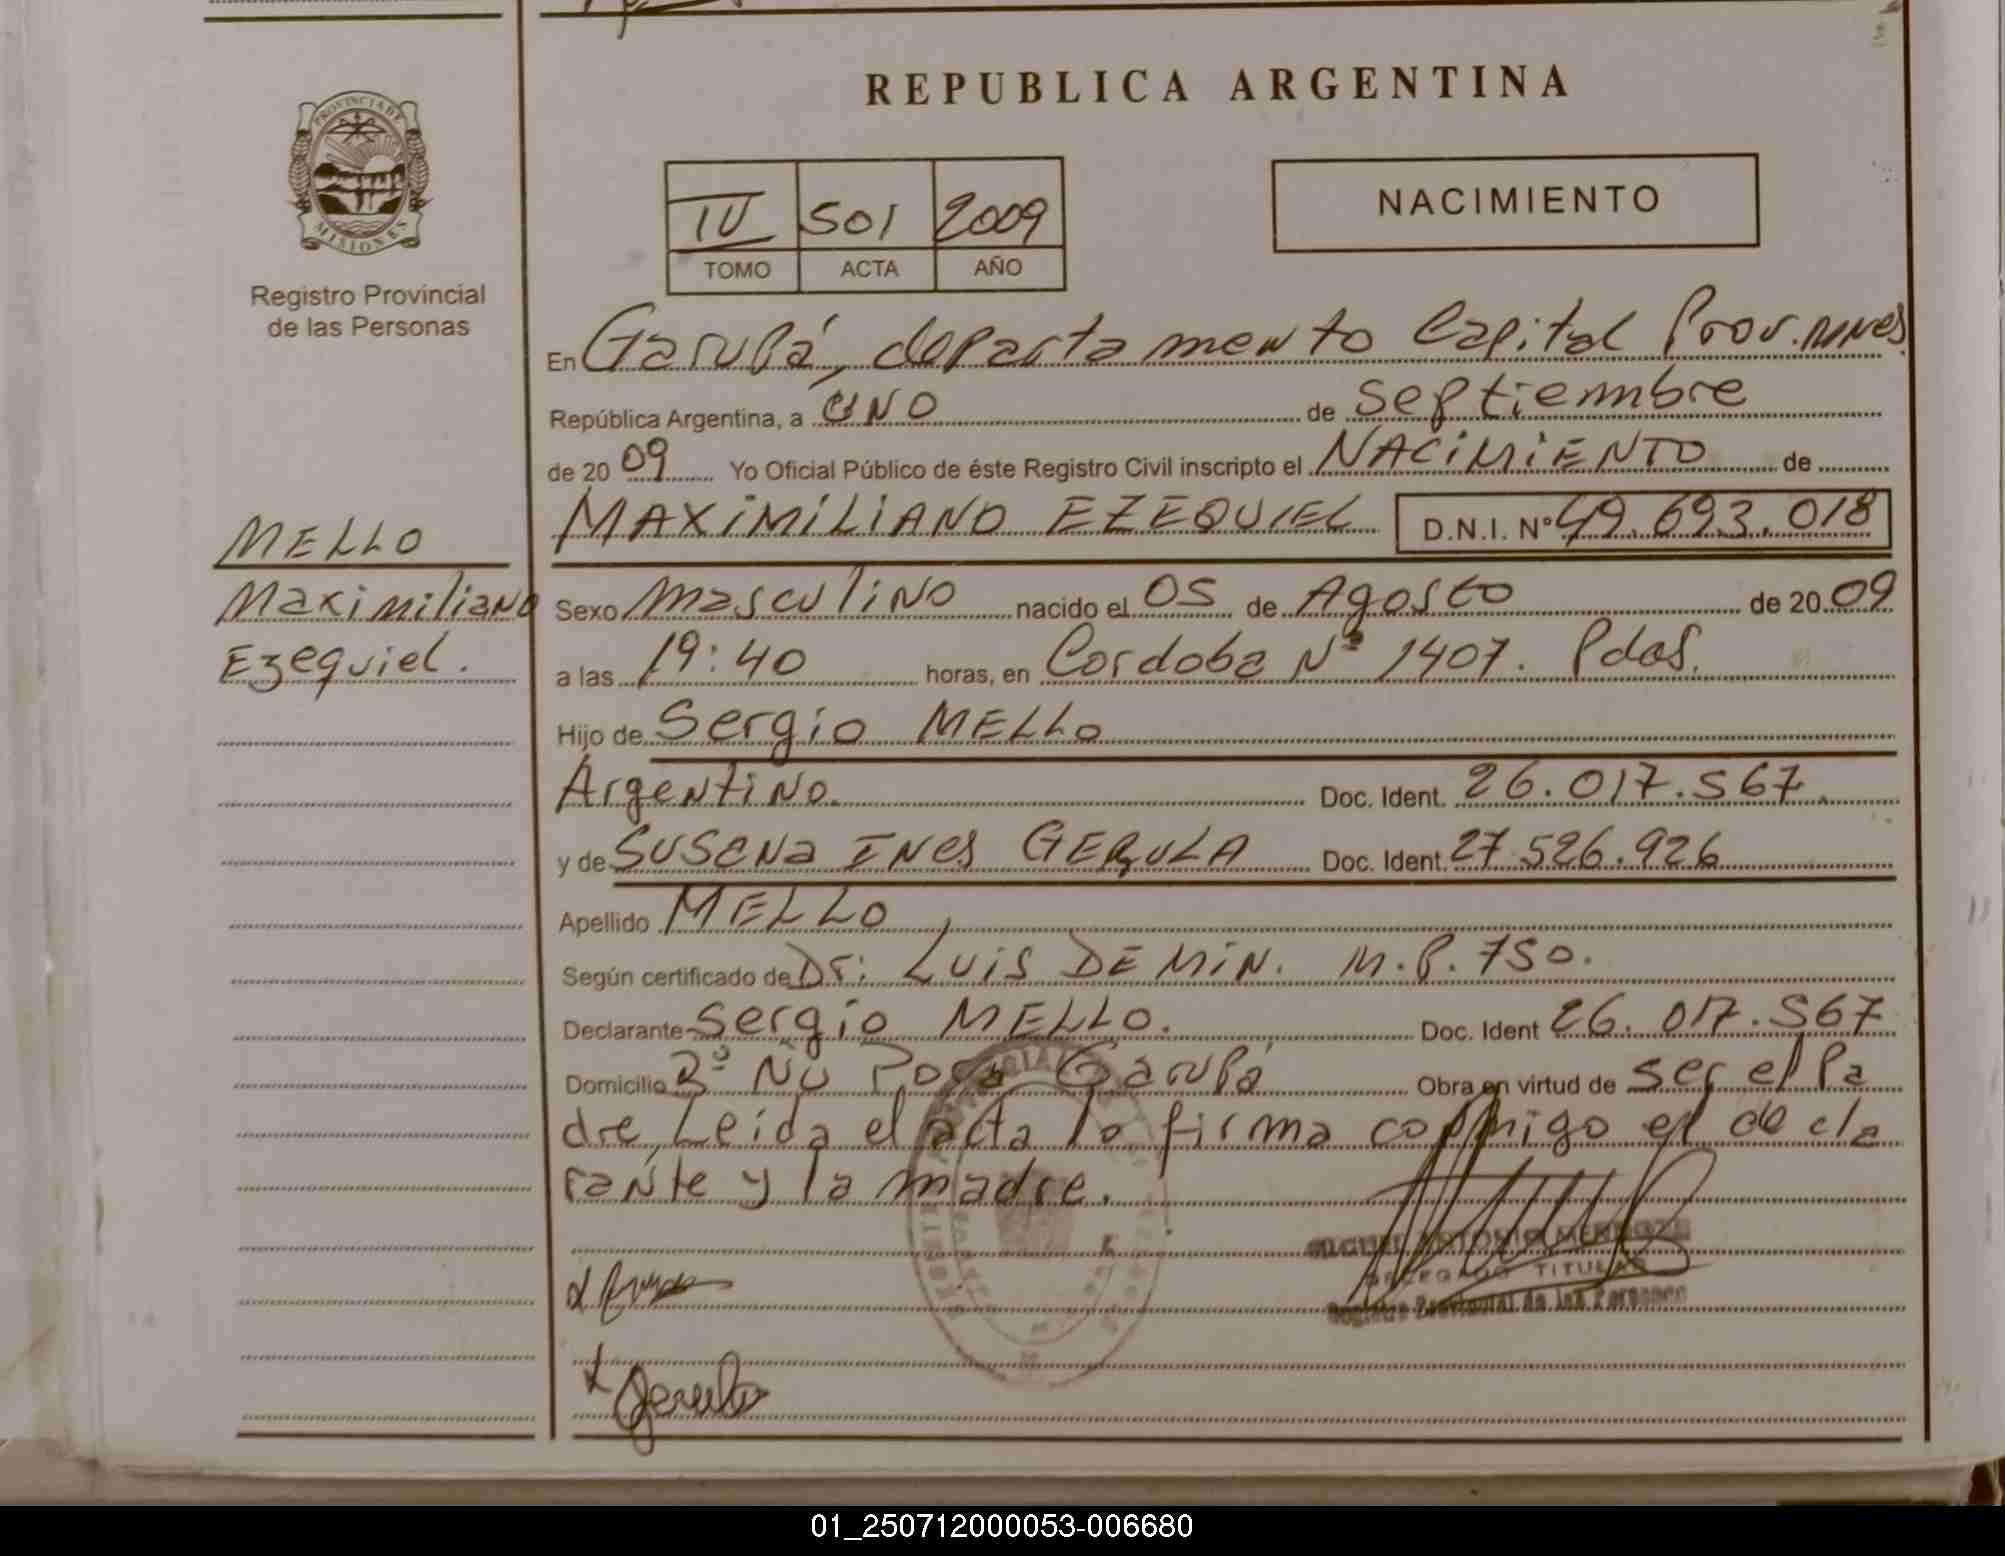 REPUBLICA ARGENTINA
PROVINCIA DE
MISIONES
Registro Provincial
de las Personas
IV 501 2009
TOMO ACTA AÑO
NACIMIENTO
En Garupá, departamento Capital Prov. Mnes.
República Argentina, a UNO de septiembre
de 20 09 Yo Oficial Público de éste Registro Civil inscripto el NACIMIENTO de
MAXIMILIANO EZEQUIEL D.N.I. Nº 49.693.018
MELLO
Maximiliano
Ezequiel.
Sexo masculino nacido el 05 de Agosto de 20 09
a las 19:40 horas, en Cordoba Nº 1407. Pdas.
Hijo de Sergio MELLO
Argentino. Doc. Ident. 26.017.567
y de Susana Ines GERULA Doc. Ident. 27.526.926
Apellido MELLO
Según certificado de Dr: Luis DEMIN. M.P. 750.
Declarante Sergio MELLO. Doc. Ident 26.017.567
Domicilio Garupá Obra en virtud de ser el pa
dre, Leída el acta la firma conmigo el decla
rante y la madre.
DELEGADO TITULAR
Registro Provincial de las Personas
Gerula
01_250712000053-006680